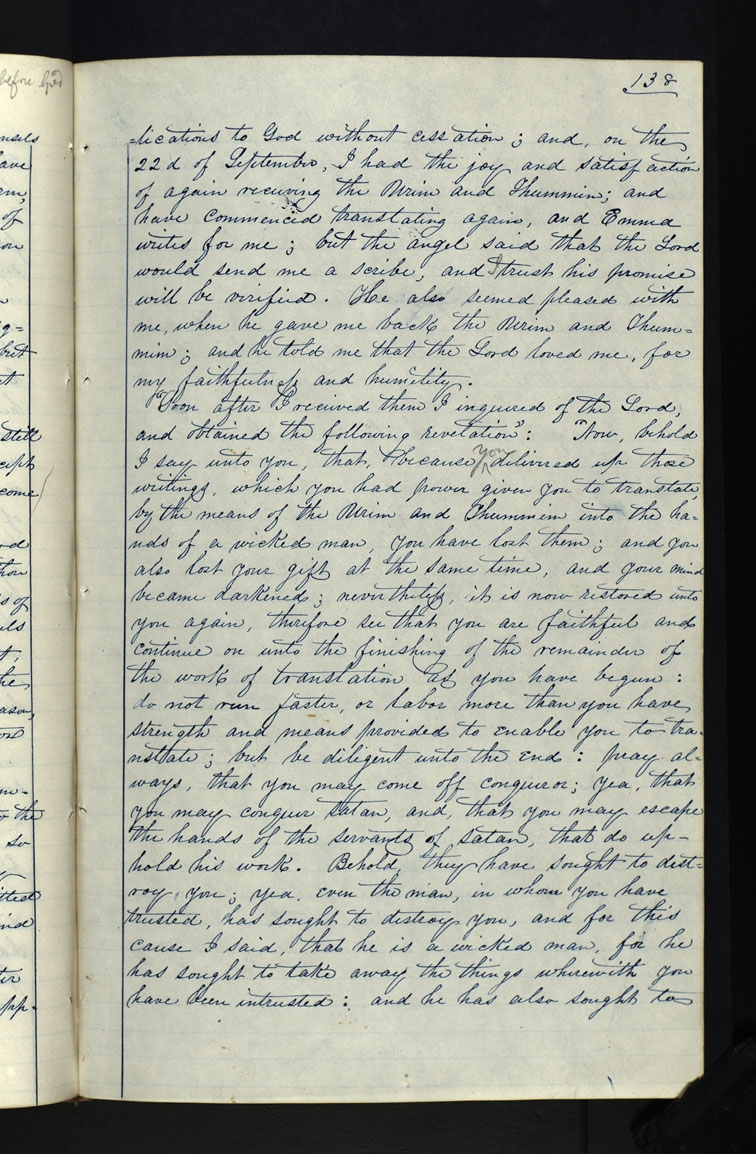 before God
138
=lications to God without cessation; and, on the
22d of September, I had the joy and satisfaction
of again receiving the Urim and Thummim; and
have commenced translating again, and Emma
writes for me; but the angel said that the Lord
would send me a scribe, and I trust his promise
will be verified. He also seemed pleased with
me, when he gave me back the Urim and Thum=
mim; and he told me that the Lord loved me, for
my faithfulness and humility.
"Soon after I received them I inquired of the Lord,
and obtained the following revelation": "Now, behold
I say unto you, that, because you delivered up those
writings, which you had power given you to translate,
by the means of the Urim and Thummim into the ha=
nds of a wicked man, you have lost them; and you
also lost your gift at the same time, and your mind
became darkened; nevertheless, it is now restored unto
you again, therefore see that you are faithful and
continue on unto the finishing of the remainder of
the work of translation as you have begun:
do not run faster, or labor more than you have
strength and means provided to enable you to tra=
nslate; but be diligent unto the end: pray al=
ways, that you may come off conqueror; yea, that
you may conquer satan, and, that you may escape
the hands of the servants of satan, that do up=
hold his work. Behold, they have sought to dest=
roy you; yea, even the man, in whom you have
trusted, has sought to destroy you, and for this
cause I said, that he is a wicked man, for he
has sought to take away the things wherewith you
have been intrusted: and he has also sought to